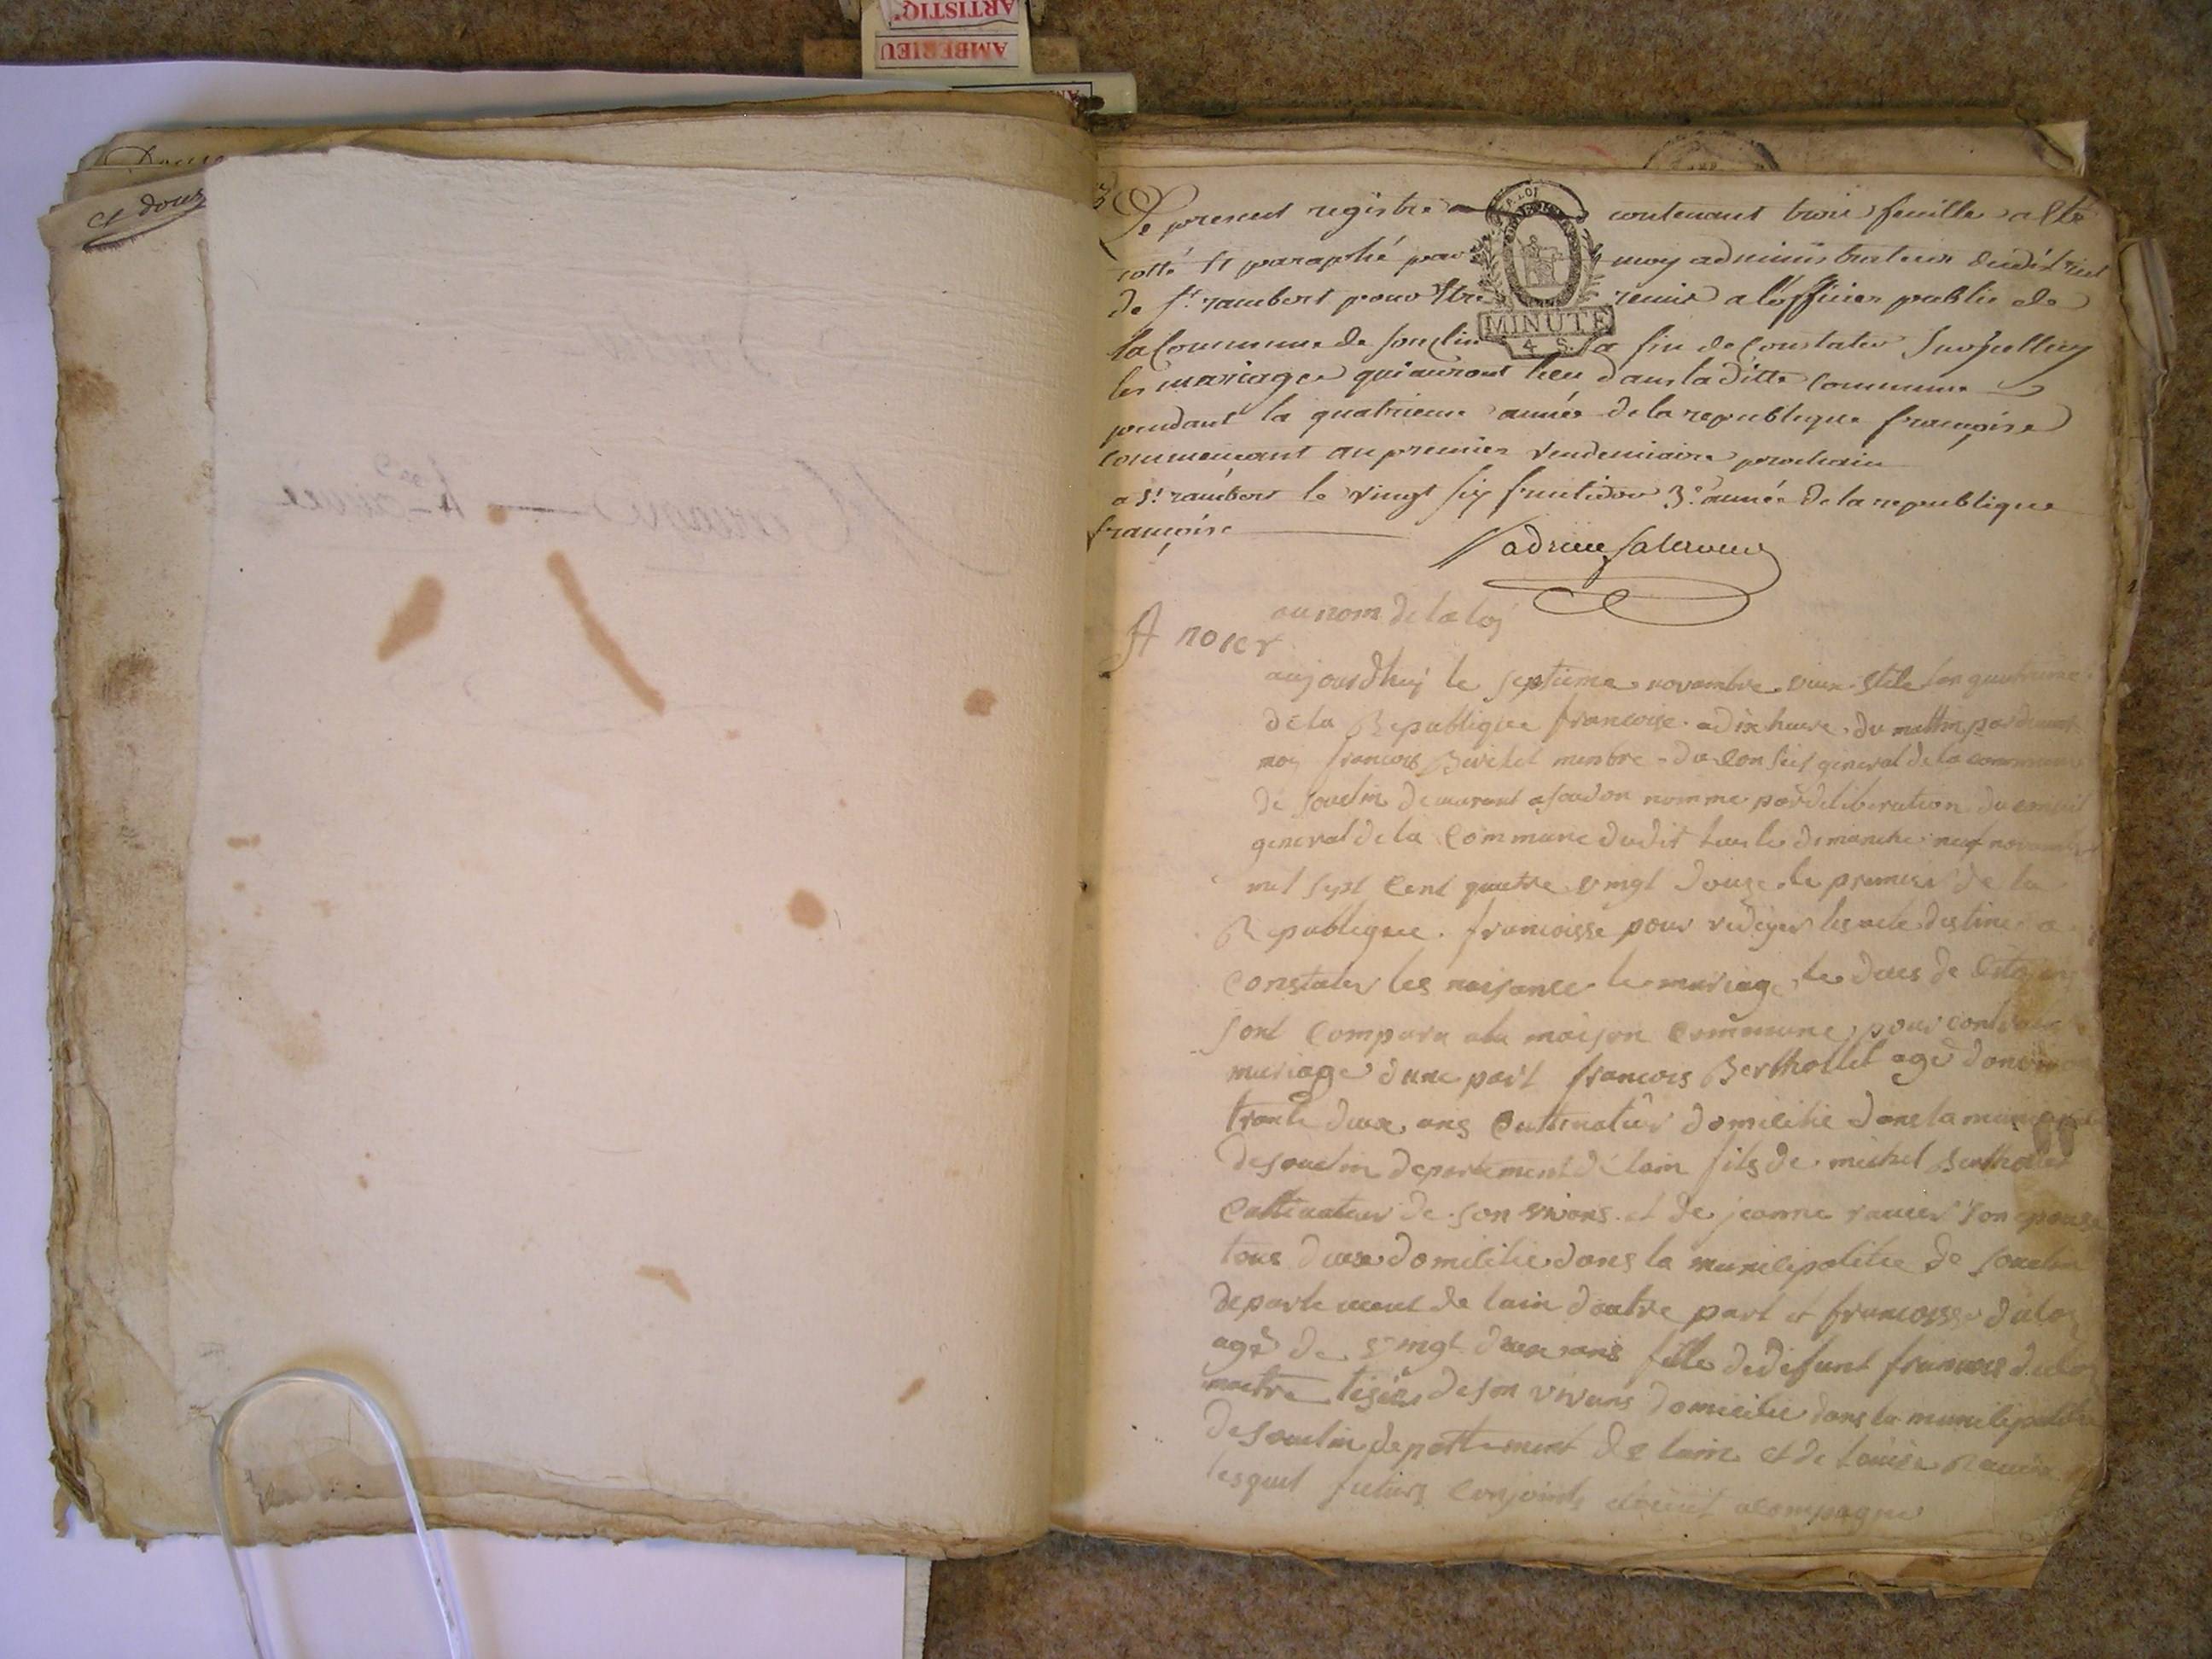 ARTISTIQ'
AMBERIEU
et douz
Le present registre contenant trois feuille a été
cotté et paraphé par moy administrateur du district
de St rambert pour être remis a l'officier public de
la Commune de souclin a fin de Constater
les mariages qui auront lieu dans la ditte commune
pendant la quatrieme année de la republique françoise
commencant au premier vendemiaire prochain
a St rambert le vingt six fructidor 3e année de la republique
françoise
MINUTE
4 S.
au nom de la loy
A
aujourdhuy le septieme novembre vieux stile lan quatrieme
de la Republique francoise a dix heure du mattin par devant
moy francois membre du Conseil general de la commune
de souclin demeurant a soudon nomme par deliberation du conseil
general de la Commune dudit lieu le dimanche neuf novembre
mil sept Cent quatre vingt douze le premier de la
Republique francoisse pour rediger les acte destine a
Constater les naisance le mariage le deces de Citoyen
sont Comparu a la maison Commune pour contracter
mariage dune part francois Berthollet agé d'environ
trante deux ans Cultivateur domicilié dans la municipalité
de souclin departement de lain fils de michel Berthollet
Cultivateur de son vivans et de jeanne son epouse
tous deux domicilie dans la municipalitie de souclin
departement de lain dautre part et francoisse
agé de vingt deux ans fille de defunt francois
maitre de son vivans domicilie dans la municipalitie
de souclin departement de lain et de Louise
lesquel futurs Conjoints etoient acompagne